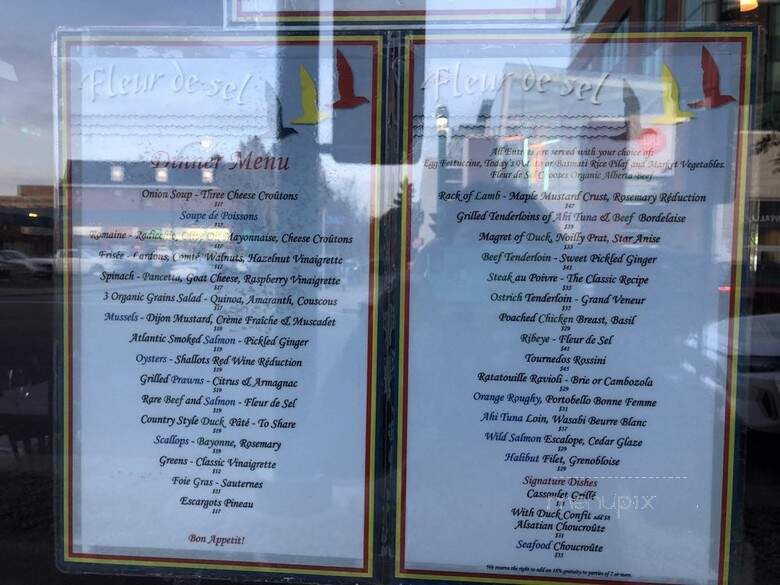 Fleur de sel
Dinner Menu
Onion Soup - Three Cheese Croûtons
$17
Soupe de Poissons
$17
Romaine - Mayonnaise, Cheese Croûtons
Frisée - Lardons, Comté, Walnuts, Hazelnut Vinaigrette
$17
Spinach - Pancetta, Goat Cheese, Raspberry Vinaigrette
$17
3 Organic Grains Salad - Quinoa, Amaranth, Couscous
$17
Mussels - Dijon Mustard, Crème Fraîche & Muscadet
$19
Atlantic Smoked Salmon - Pickled Ginger
$19
Oysters - Shallots Red Wine Réduction
$19
Grilled Prawns - Citrus & Armagnac
$19
Rare Beef and Salmon - Fleur de Sel
$19
Country Style Duck Pâté - To Share
$19
Scallops - Bayonne, Rosemary
$19
Greens - Classic Vinaigrette
$12
Foie Gras - Sauternes
$25
Escargots Pineau
$17
Bon Appetit!
Fleur de sel
All Entrées are served with your choice of:
Egg Fettuccine, Today's Potato or Basmati Rice Pilaf and Market Vegetables.
Fleur de Sel Chooses Organic Alberta Beef
Rack of Lamb - Maple Mustard Crust, Rosemary Réduction
$47
Grilled Tenderloins of Ahi Tuna & Beef Bordelaise
$39
Magret of Duck, Noilly Prat, Star Anise
$35
Beef Tenderloin - Sweet Pickled Ginger
$41
Steak au Poivre - The Classic Recipe
$35
Ostrich Tenderloin - Grand Veneur
$37
Poached Chicken Breast, Basil
$29
Ribeye - Fleur de Sel
$41
Tournedos Rossini
$45
Ratatouille Ravioli - Brie or Cambozola
$29
Orange Roughy, Portobello Bonne Femme
$31
Ahi Tuna Loin, Wasabi Beurre Blanc
$37
Wild Salmon Escalope, Cedar Glaze
$29
Halibut Filet, Grenobloise
$29
Signature Dishes
Cassoulet Grillé
With Duck Confit add $8
Alsatian Choucroûte
$31
Seafood Choucroûte
$33
We reserve the right to add an 18% gratuity to parties of 7 or more.
menupix